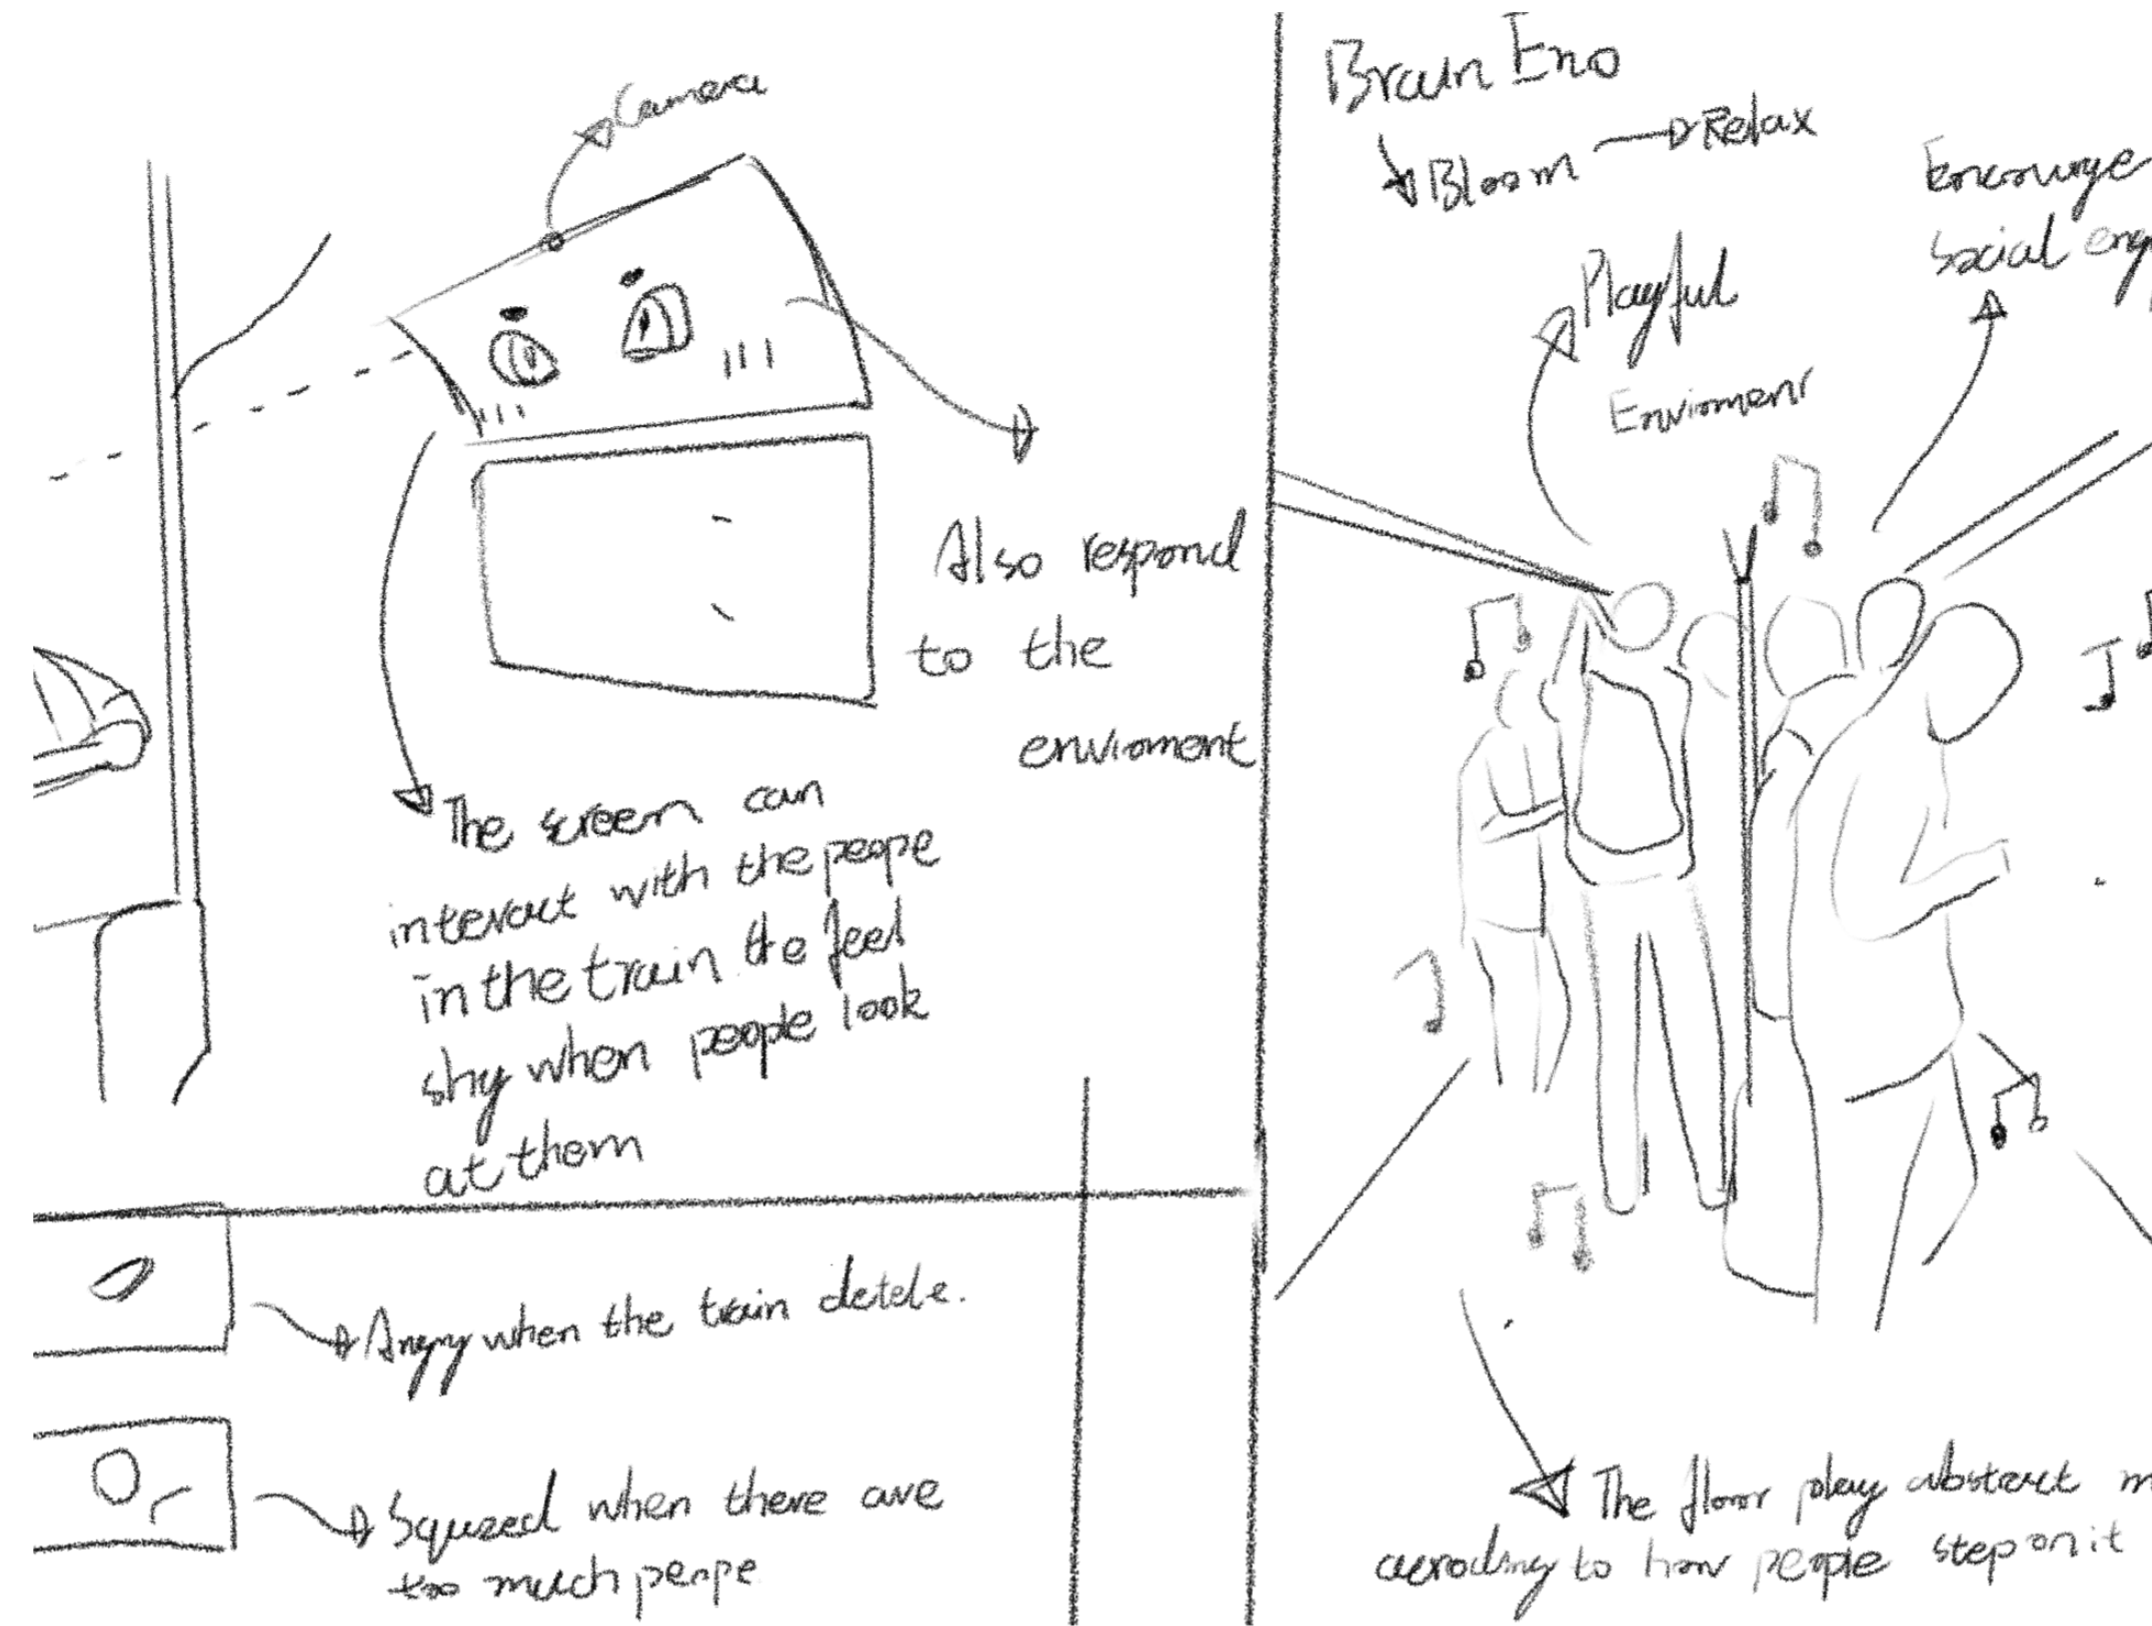 Camera
Also respond
to the
enviroment
The screen can
interact with the peope
in the train the feel
shy when people look
at them
Angry when the train detele.
Squzed when there are
too much peope
Brain Eno
Bloom → Relax
Playful
Enviroment
Encourage
social eng
The floor play abstract m
according to how people step on it